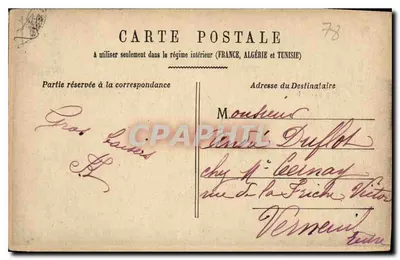 78
CARTE POSTALE
A utiliser seulement dans le régime intérieur (FRANCE, ALGÉRIE et TUNISIE)
Partie réservée à la correspondance
Adresse du Destinataire
Gros baisers
Monsieur
Duflot
chez Mr Cernay
rue de la Friche Victor
Verneuil
Eure
CPARAMA